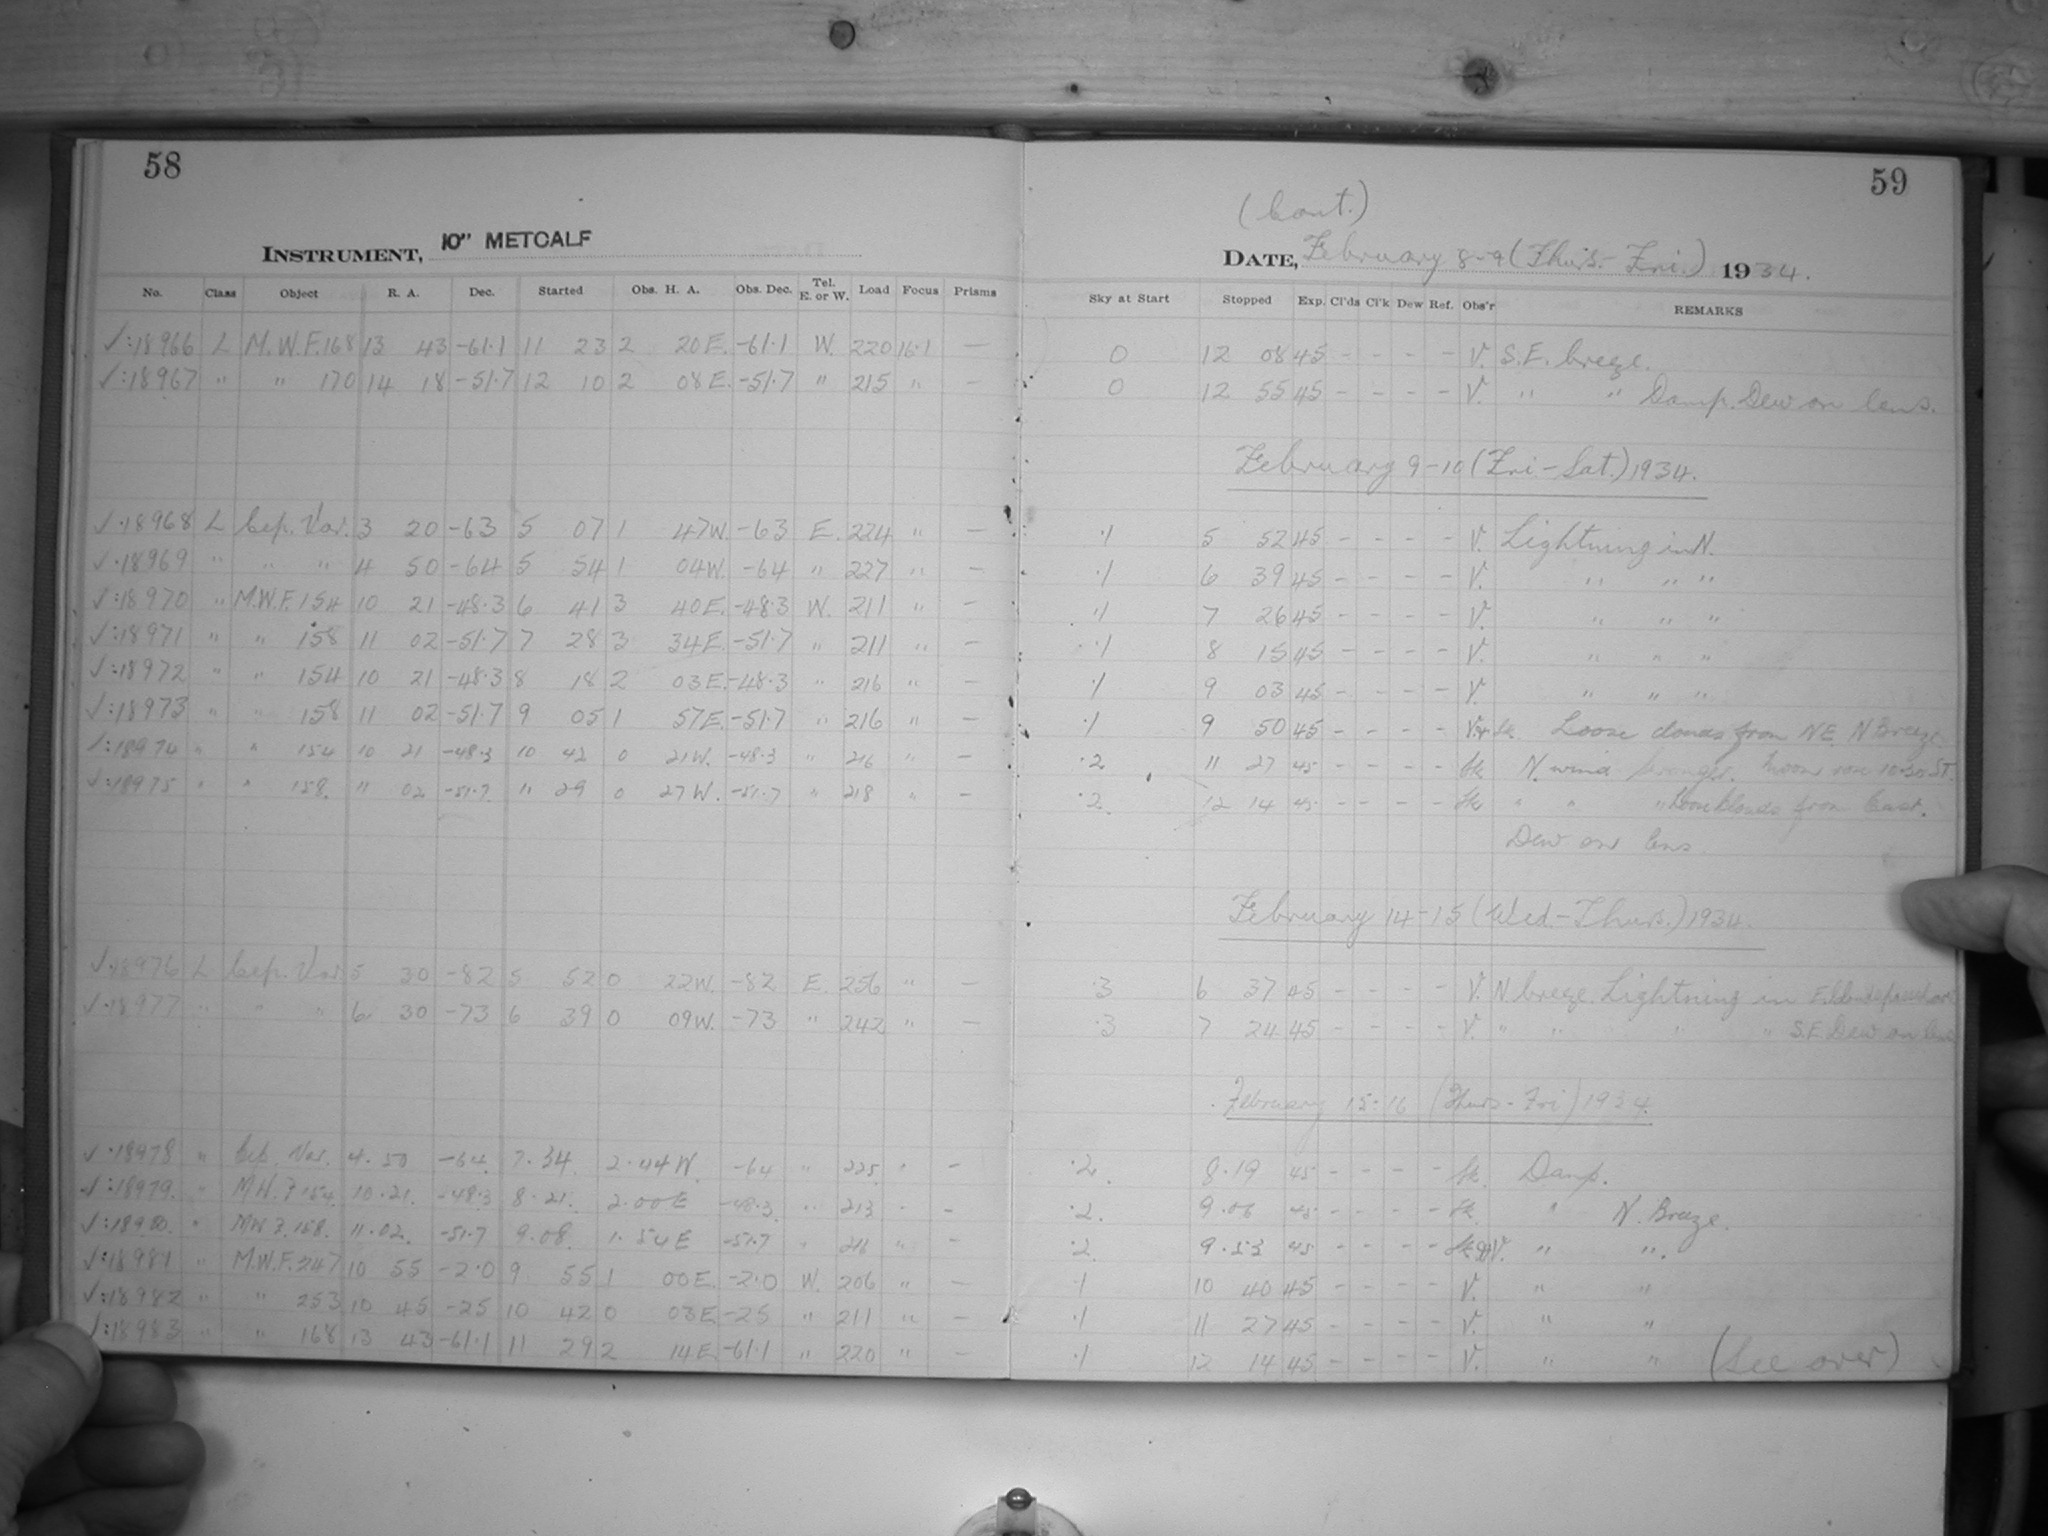 58
INSTRUMENT, 10" METCALF
No. Class Object R. A. Dec. Started Obs. H. A. Obs. Dec. Tel. E. or W. Load Focus Prisms
✓:18966 L M.W.F.168 13 43 -61.1 11 23 2 20E. -61.1 W. 220 16.1 —
✓:18967 " " 170 14 18 -51.7 12 10 2 08E. -51.7 " 215 " —
✓.18968 L Cep. Var. 3 20 -63 5 07 1 47W. -63 E. 224 " —
✓.18969 " " " 4 50 -64 5 54 1 04W. -64 " 227 " —
✓:18970 " M.W.F.154 10 21 -48.3 6 41 3 40E. -48.3 W. 211 " —
✓:18971 " " 158 11 02 -51.7 7 28 3 34E. -51.7 " 211 " —
✓:18972 " " 154 10 21 -48.3 8 18 2 03E. -48.3 " 216 " —
✓:18973 " " 158 11 02 -51.7 9 05 1 57E. -51.7 " 216 " —
✓:18974 " " 154 10 21 -48.3 10 42 0 21W. -48.3 " 216 " —
✓:18975 " " 158. 11 02 -51.7 11 29 0 27W. -51.7 " 218 " —
✓.18976 L Cep. Var. 5 30 -82 5 52 0 22W. -82 E. 256 " —
✓.18977 " " " 6 30 -73 6 39 0 09W. -73 " 242 " —
✓.18978 " Cep. Var. 4.50 -64 7.34 2.44W. -64 " 225 " —
✓:18979. " M.W.F 154 10.21. -48.3 8.21. 2.00E -48.3 " 213 - —
✓:18980. " MW F.158. 11.02. -51.7 9.08. 1.54E -51.7 " 216 " —
✓:18981 " M.W.F.247 10 55 -2.0 9 55 1 00E. -2.0 W. 206 " —
✓:18982 " " 253 10 45 -25 10 42 0 03E -25 " 211 " —
✓:18983 " " 168 13 43 -61.1 11 29 2 14E -61.1 " 220 " —
59
(Cont.)
DATE, February 8-9 (Thurs.-Fri.) 1934.
Sky at Start Stopped Exp. Cl'ds Cl'k Dew Ref. Obs'r REMARKS
0 12 08 45 - - - - V. S.E. breeze.
0 12 55 45 - - - - V. " " Damp. Dew on lens.
February 9-10 (Fri-Sat.) 1934.
.1 5 52 45 - - - - V. Lightning in N.
.1 6 39 45 - - - - V. " " "
.1 7 26 45 - - - - V. " " "
.1 8 15 45 - - - - V. " " "
.1 9 03 45 - - - - V. " " "
.1 9 50 45 - - - - V.+Sk. Loose clouds from NE. N Breeze.
.2 11 27 45 - - - - Sk N. wind stronger. Moon rose 10.30 ST.
.2 12 14 45 - - - - Sk " " " Loose clouds from East.
Dew on lens.
February 14-15 (Wed.-Thurs.) 1934.
.3 6 37 45 - - - - V. N. breeze. Lightning in E.
.3 7 24 45 - - - - V. " " " " S.E. Dew on lens
February 15-16 (Thurs-Fri) 1934.
.2 8.19 45 - - - - Sk. Damp.
.2. 9.06 45 - - - - Sk " N. Breeze.
.2 9.53 45 - - - - Sk+V. " ".
.1 10 40 45 - - - - V. " "
.1 11 27 45 - - - - V. " "
.1 12 14 45 - - - - V. " " (See over)